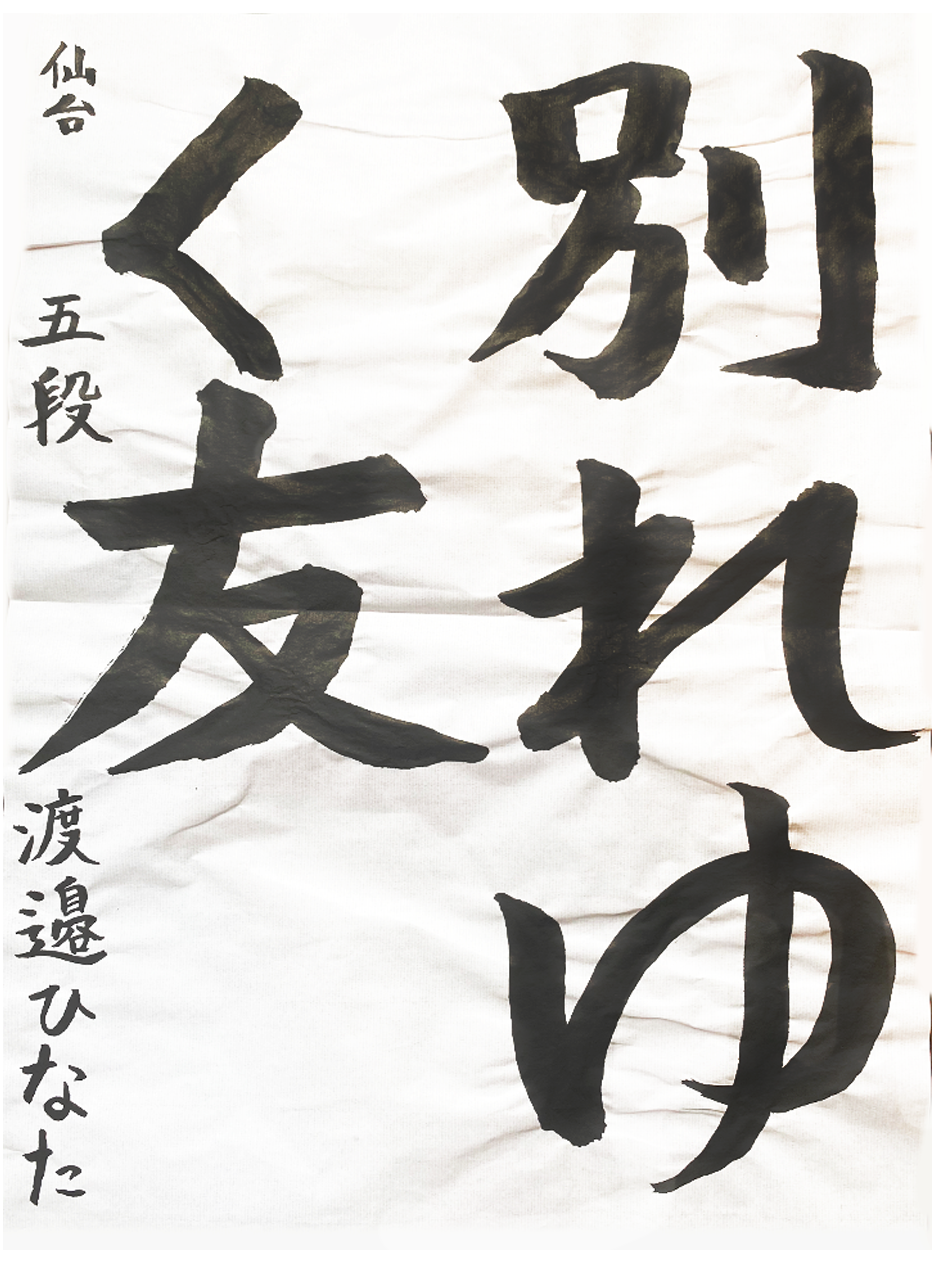 別れゆ
く友
仙台 五段 渡邉ひなた